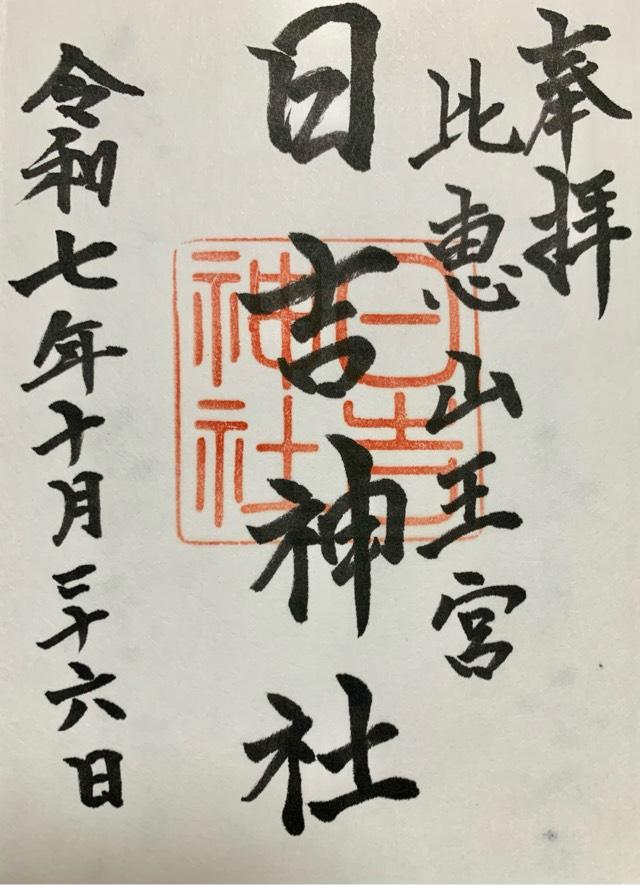 奉拝
比恵山王宮
日吉神社
日吉神社
令和七年十月二十六日